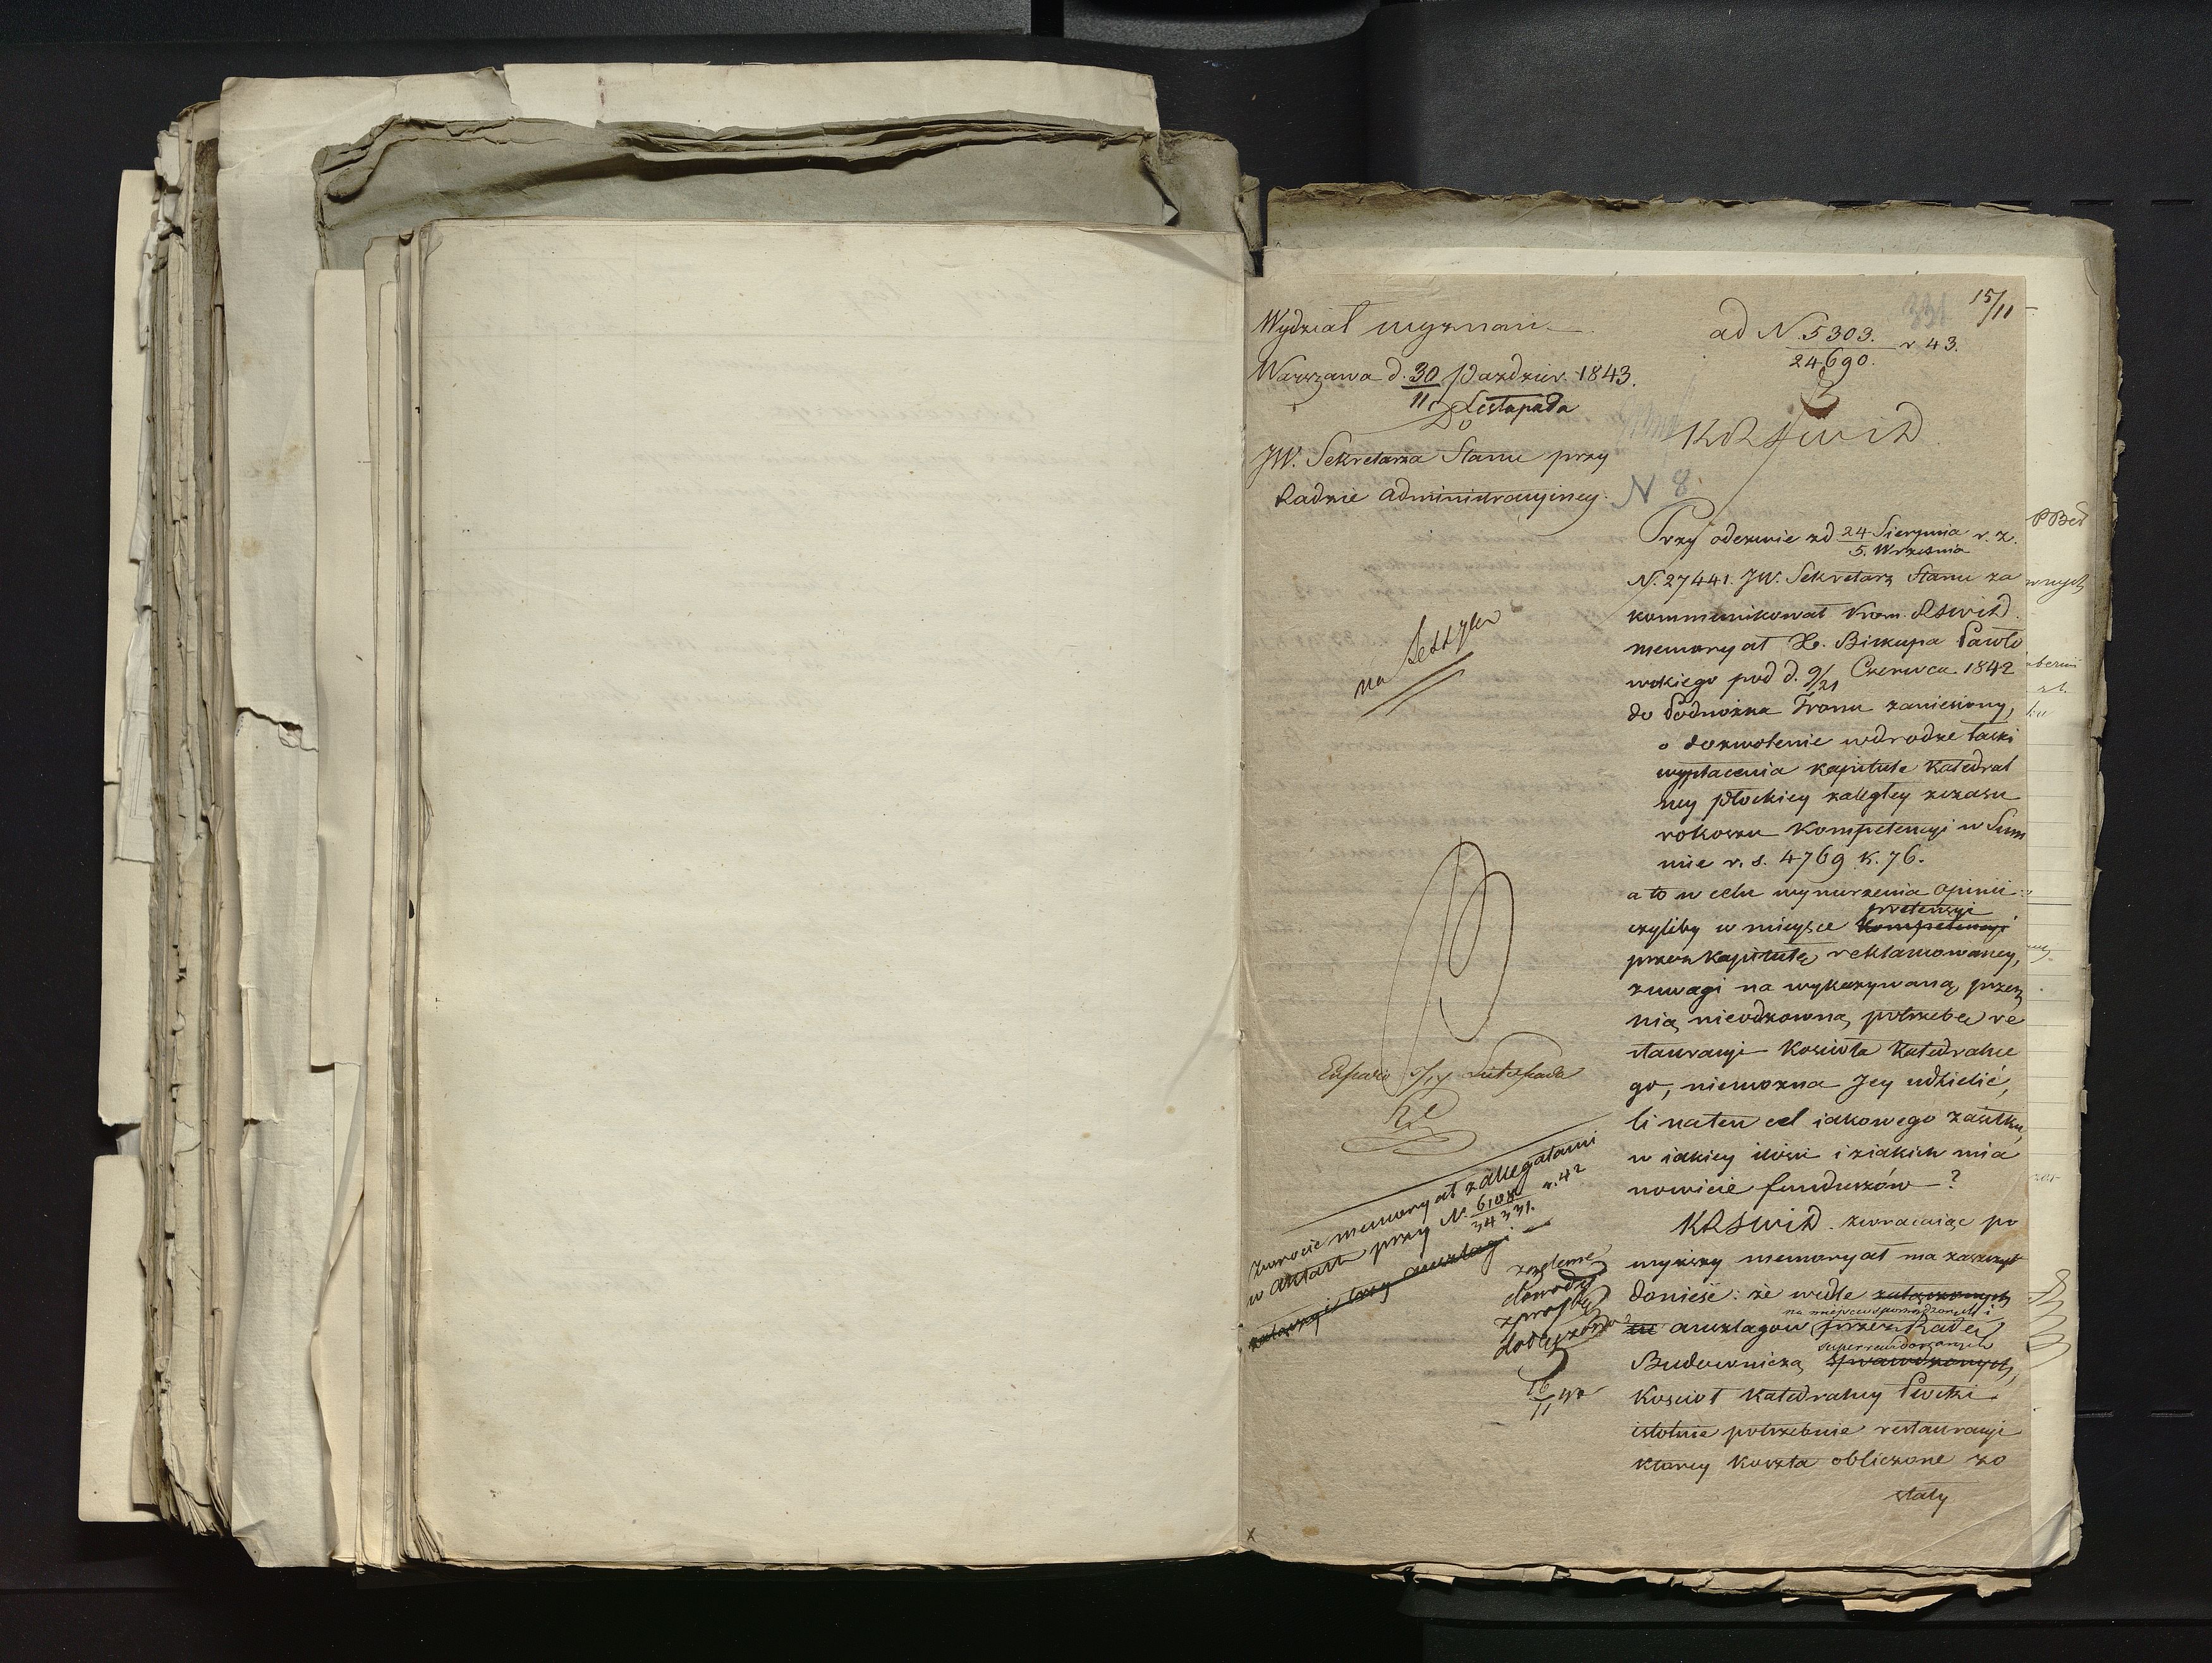 15/11
331
Wydział wyznań
ad N. 5303. / 24690. r 43.
Warszawa d. 30 Paździer. 1843.
11 Listopada
Do
KRSWiD
JW. Sekretarza Stanu przy
Radzie Administracyiney.
N 8.
Przy odezwie zd 24 Sierpnia / 5. Września r. z.
N. 27441. JW. Sekretarz Stanu za
kommunikował Kom. RSWiD.
memoryał X. Biskupa Pawło
wskiego pod d. 9/21 Czerwca 1842
do Podnóżka Tronu zaniesiony,
o dozwolenie wdrodze łaski
wypłacenia kapitule Katedral
ney płockiey zaległey zczasu
rokoszu Kompetencyi w Sum
mie r. s. 4769 k. 76.
a to w celu wynurzenia opinii
pretensyi
czyliby w mieysce kompetencyi
przez kapitułę reklamowaney,
zuwagi na wykazywaną przez
nią nieodzowną potrzebę re
stauracyi Kościoła Katedralne
go, niemożna Jey udzielić,
li naten cel iakowego zasiłku,
w iakiey ilości i ziakich mia
nowicie funduszów?
KRSWiD. zwracaiąc po
wyższy memoryał ma zaszczyt
donieść: że wedle załączonych
na mieyscu sporządzonych i
anszlagów przez Radę
superrewidowanych
Budowniczą sprawdzonych,
Kościół Katedralny Płocki
istotnie potrzebuie restauracyi
którey koszta obliczone zo
stały
na Sessyą
5/17 Listopada
Zwrócić memoryał zallegatami
w aktach przy N. 6108 / 34331. r. 42
załączyć trzy anszlagi
dowody
16/11
x